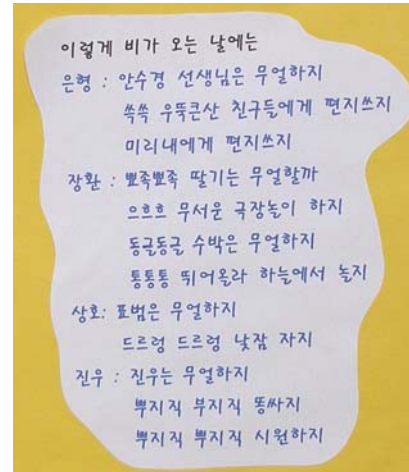 이렇게 비가 오는 날에는
은형 : 안수경 선생님은 무얼하지
쓱쓱 우뚝큰산 친구들에게 편지쓰지
미리내에게 편지쓰지
장환 : 뾰족뾰족 딸기는 무얼할까
으흐흐 무서운 극장놀이 하지
동글동글 수박은 무얼하지
통통통 뛰어올라 하늘에서 놀지
상호: 표범은 무얼하지
드르렁 드르렁 낮잠 자지
진우 : 진우는 무얼하지
뿌지직 부지직 똥싸지
뿌지직 뿌지직 시원하지